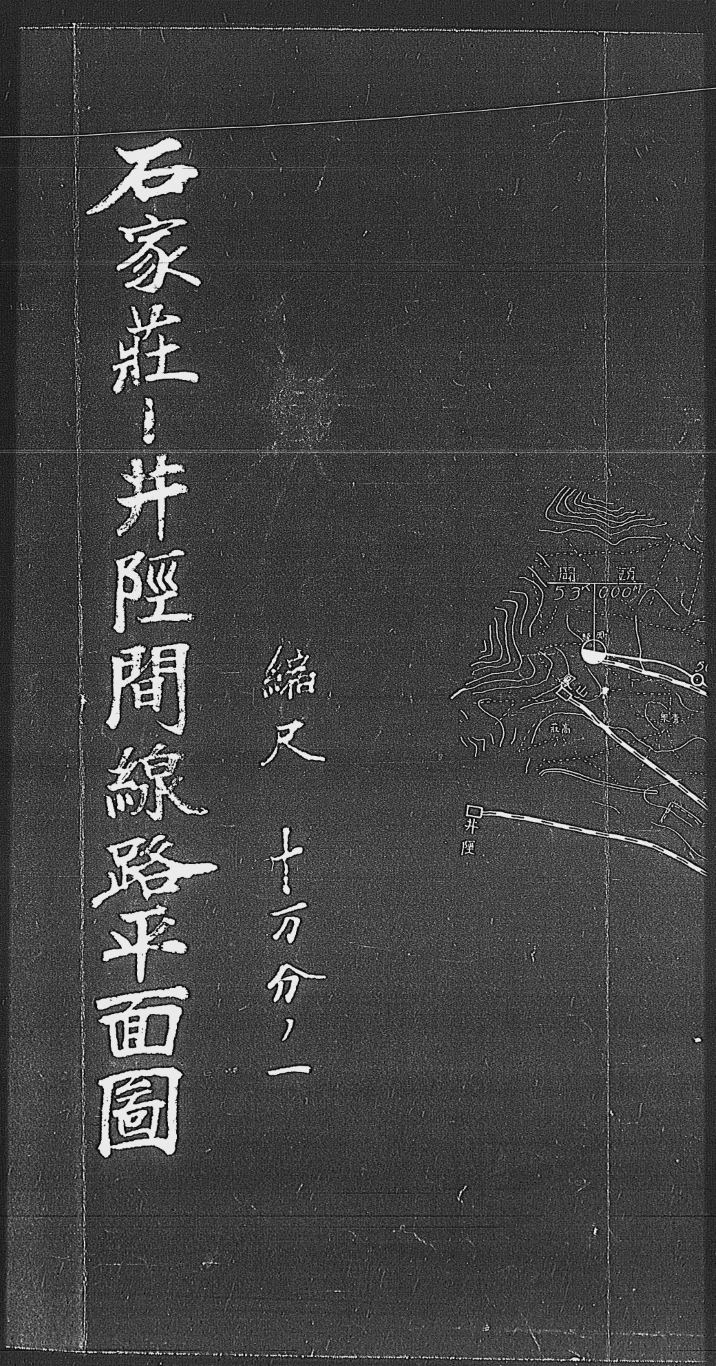 石家莊ー井陘間線路平面圖
縮尺 十万分ノ一
岡頭
53K000M
井陘